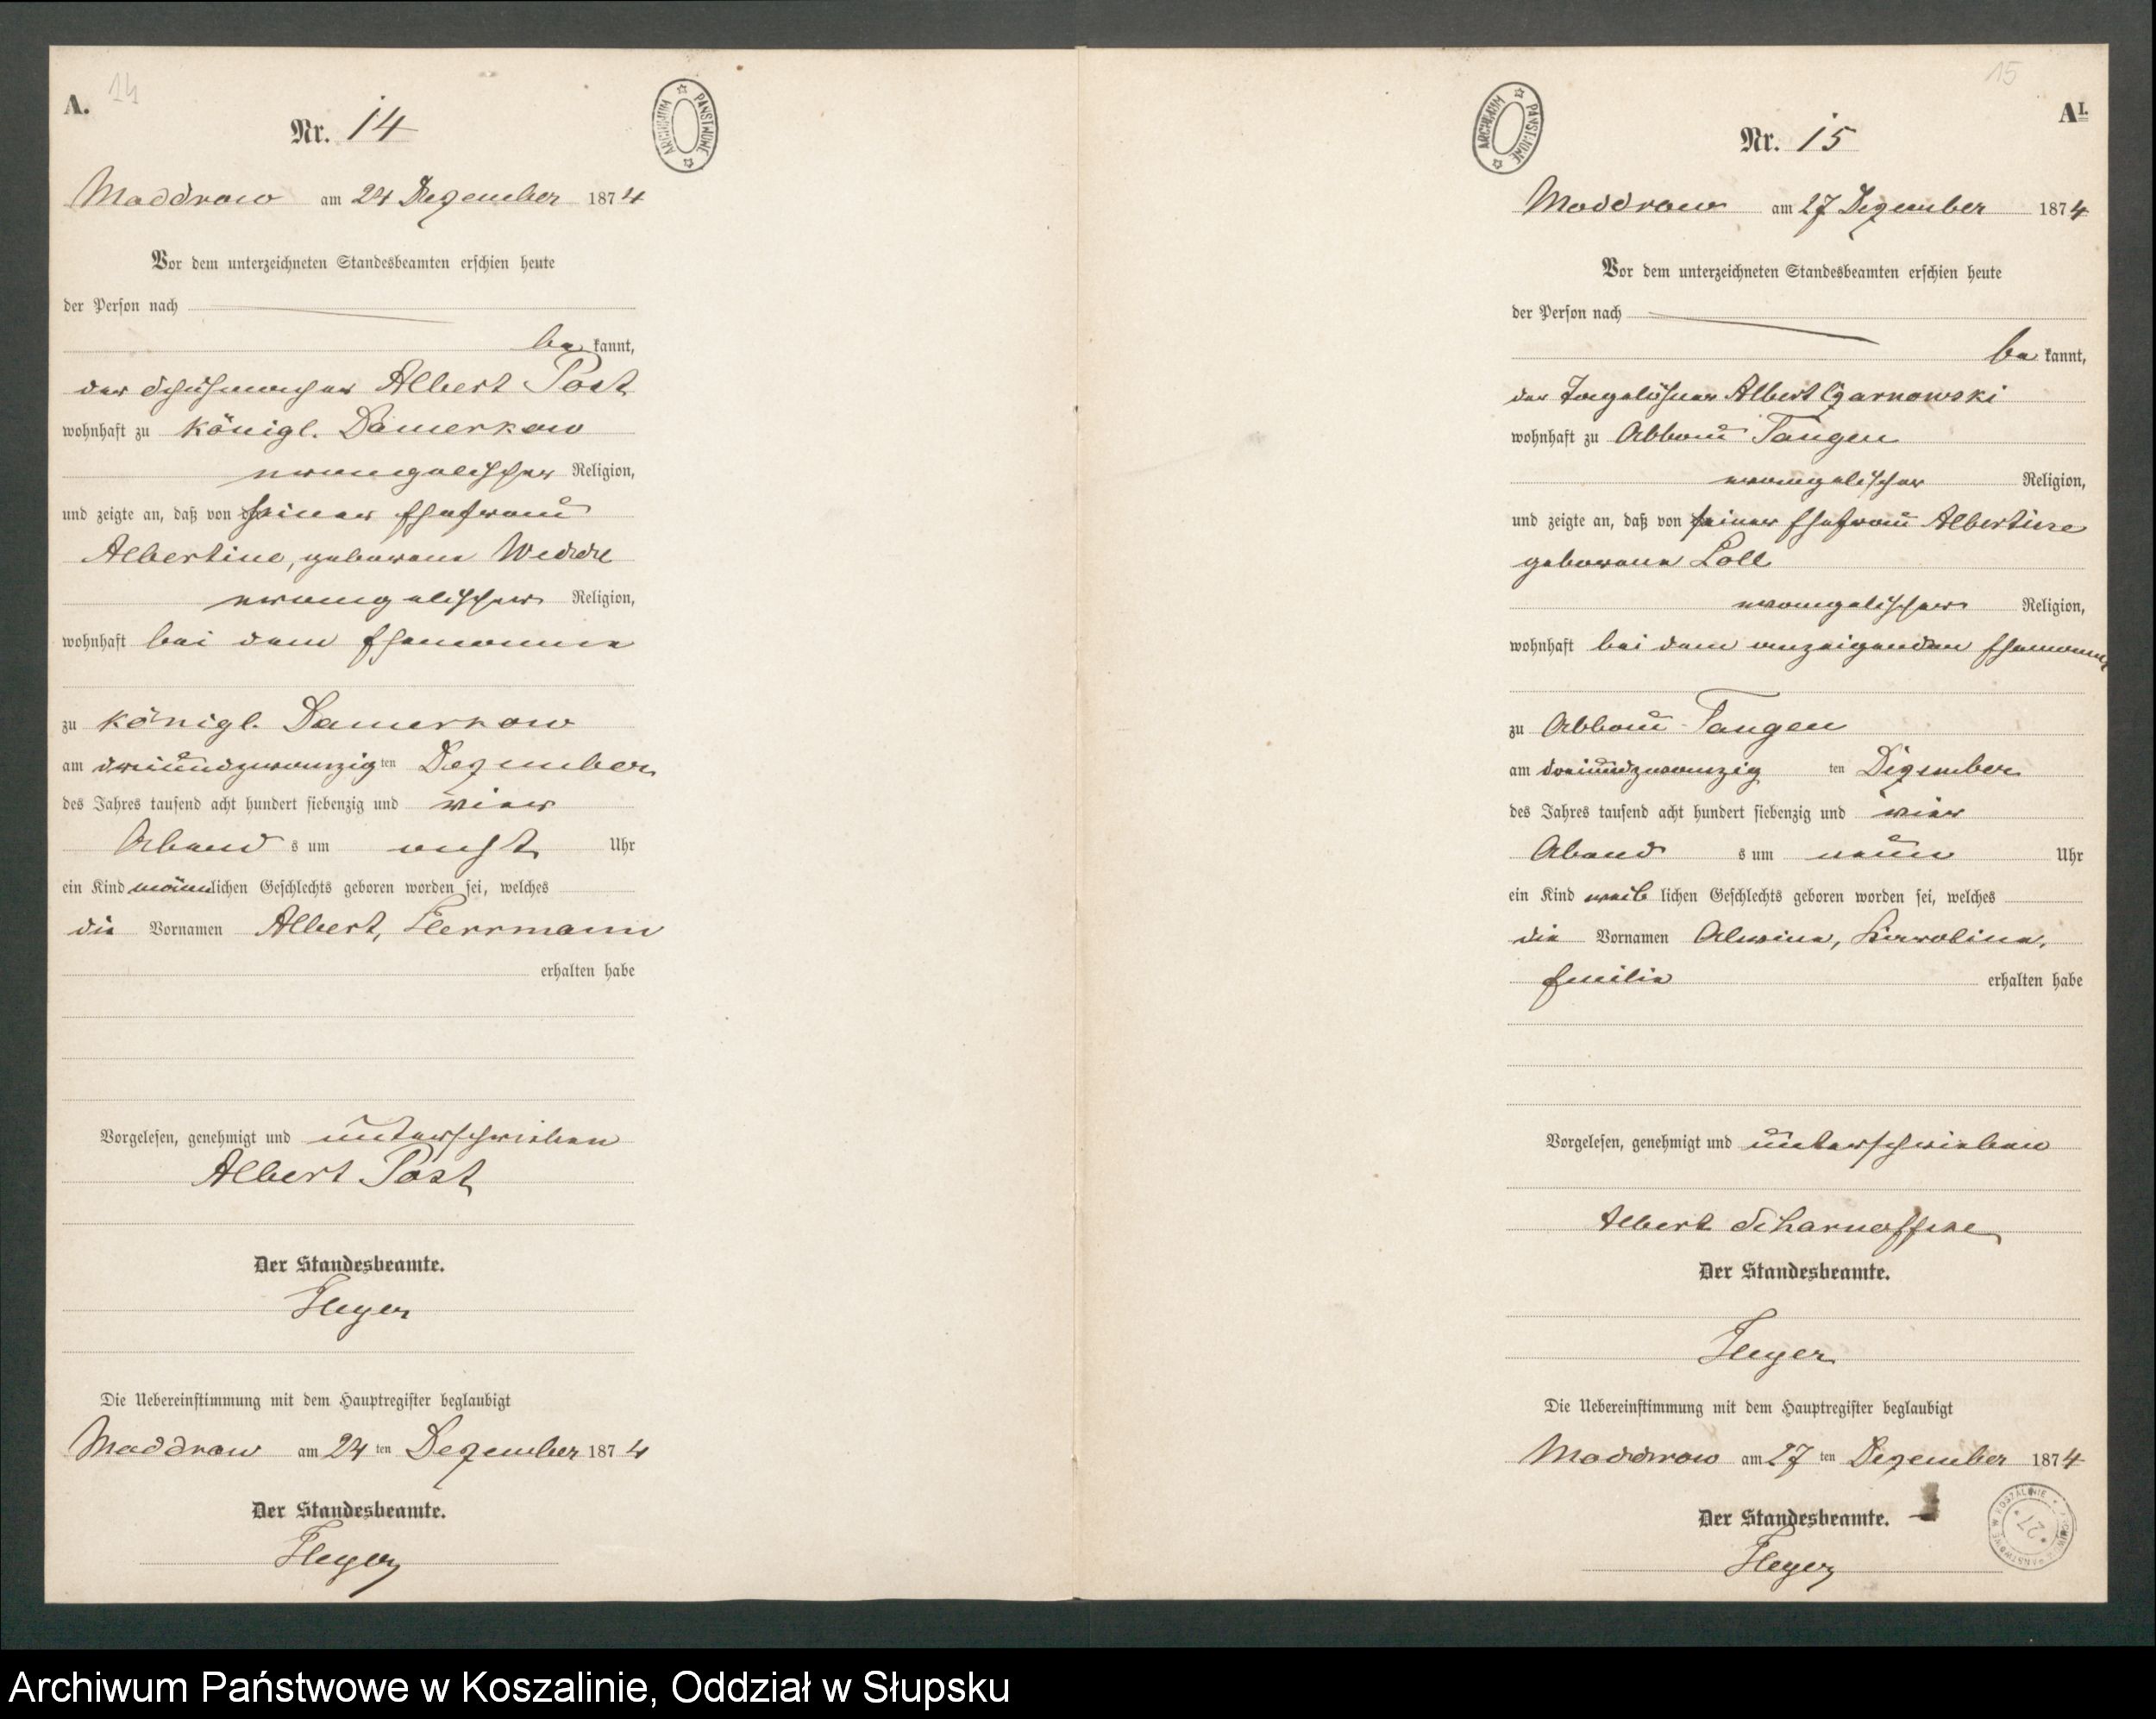 14
A.
Nr. 14
ARCHIWUM PAŃSTWOWE
Maddrow am 24 Dezember 1874
Vor dem unterzeichneten Standesbeamten erschien heute
der Person nach
be kannt,
der Schuhmacher Albert Post
wohnhaft zu Königl. Damerkow
evangelischer Religion,
und zeigte an, daß von seiner Ehefrau
Albertine, geborene Weddel
evangelischer Religion,
wohnhaft bei dem Ehemanne
zu Königl. Damerkow
am dreiundzwanzig ten Dezember
des Jahres tausend acht hundert siebenzig und vier
Abend s um acht Uhr
ein Kind männlichen Geschlechts geboren worden sei, welches
die Vornamen Albert, Herrmann
erhalten habe
Vorgelesen, genehmigt und unterschrieben
Albert Post
Der Standesbeamte.
Heyer
Die Uebereinstimmung mit dem Hauptregister beglaubigt
Maddrow am 24 ten Dezember 1874
Der Standesbeamte.
Heyer
15
AI.
Nr. 15
ARCHIWUM PAŃSTWOWE
Maddrow am 27 Dezember 1874
Vor dem unterzeichneten Standesbeamten erschien heute
der Person nach
be kannt,
der Tagelöhner Albert Czarnowski
wohnhaft zu Abbau Tangen
evangelischer Religion,
und zeigte an, daß von seiner Ehefrau Albertine
geborene Loll
evangelischer Religion,
wohnhaft bei dem anzeigenden Ehemanne
zu Abbau Tangen
am dreiundzwanzig ten Dezember
des Jahres tausend acht hundert siebenzig und vier
Abend s um neun Uhr
ein Kind weib lichen Geschlechts geboren worden sei, welches
die Vornamen Alwine, Karoline,
Emilie erhalten habe
Vorgelesen, genehmigt und unterschrieben
Albert
Der Standesbeamte.
Heyer
Die Uebereinstimmung mit dem Hauptregister beglaubigt
Maddrow am 27 ten Dezember 1874
Der Standesbeamte.
Heyer
ARCHIWUM PAŃSTWOWE W KOSZALINIE
27
Archiwum Państwowe w Koszalinie, Oddział w Słupsku